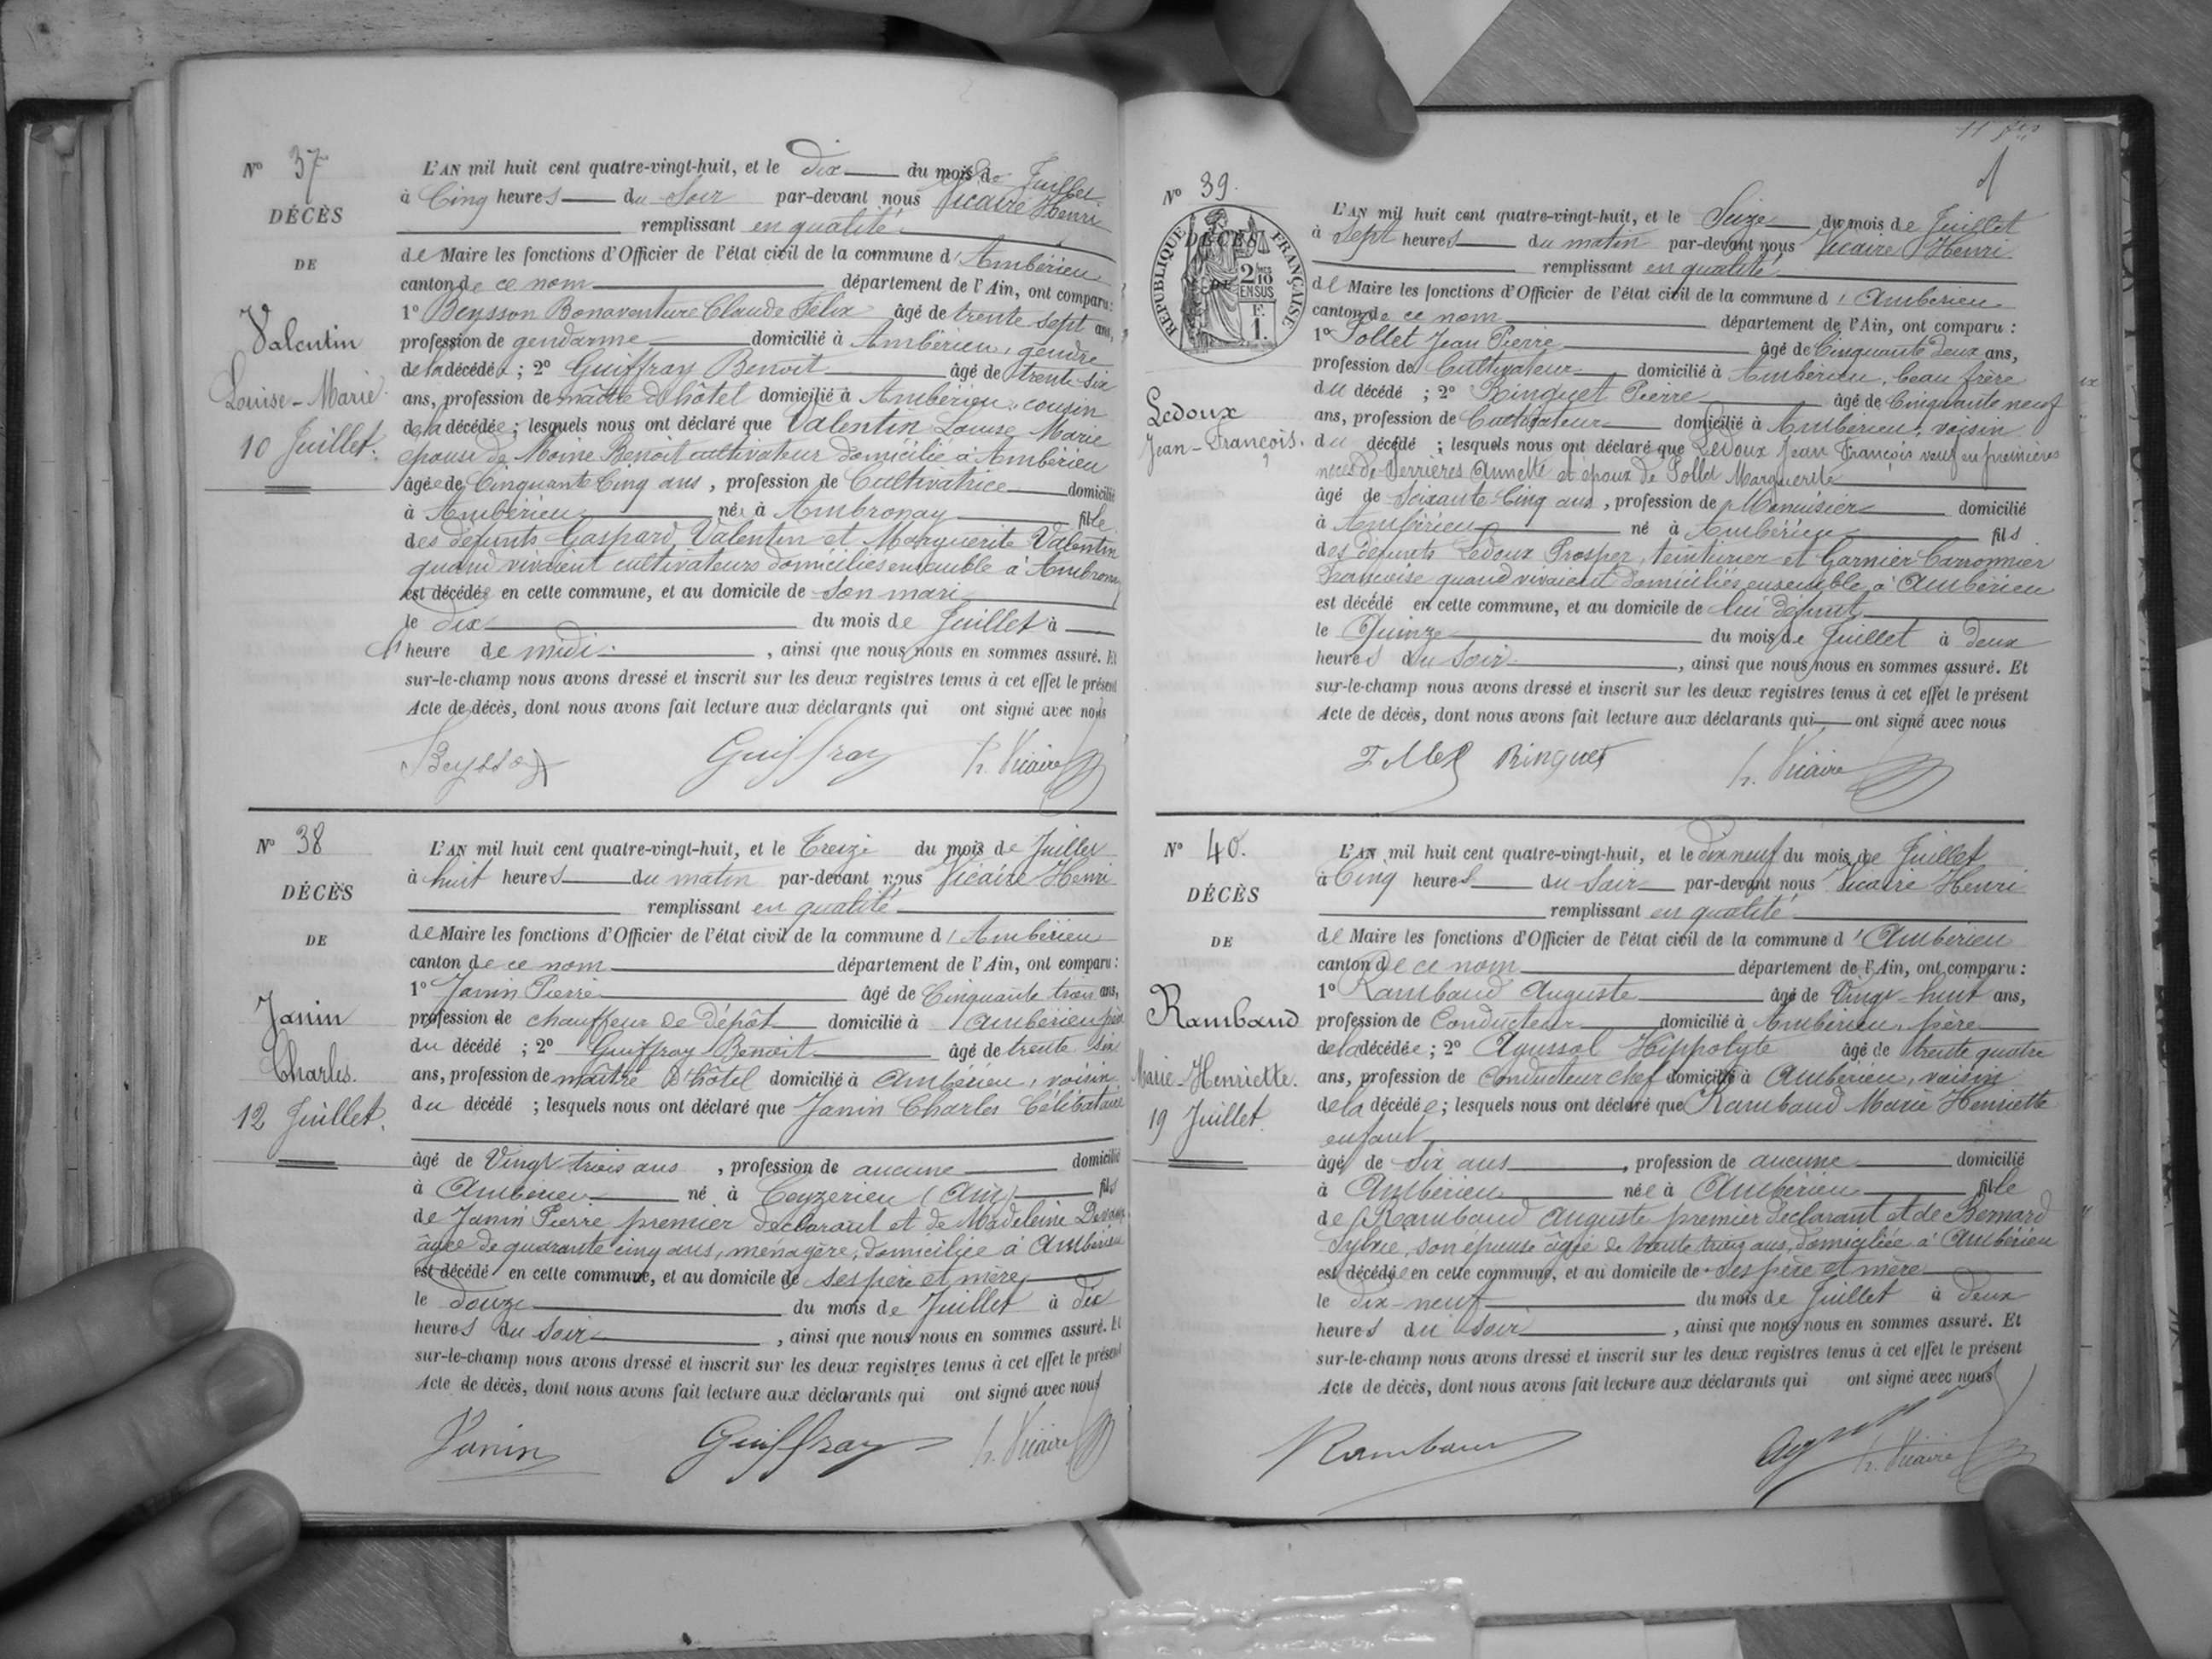 N° 37
DÉCÈS
DE
Valentin
Louise-Marie
10 Juillet.
L'AN mil huit cent quatre-vingt-huit, et le Dix du mois de Juillet
à Cinq heures du Soir par-devant nous Vicaire Henri
remplissant en qualité
de Maire les fonctions d'Officier de l'état civil de la commune d'Ambérieu
canton de ce nom département de l'Ain, ont comparu :
1° Beysson Bonaventure Claude Félix âgé de trente sept ans,
profession de gendarme domicilié à Ambérieu, gendre
de la décédée ; 2° Guiffray Benoit âgé de trente six
ans, profession de maître d'hôtel domicilié à Ambérieu, cousin
de la décédée ; lesquels nous ont déclaré que Valentin Louise Marie
épouse de Moine Benoit cultivateur domicilié à Ambérieu
âgée de Cinquante Cinq ans, profession de Cultivatrice domicilié
à Ambérieu née à Ambronay fille
des défunts Gaspard Valentin et Marguerite Valentin
quand vivaient cultivateurs domiciliés ensemble à Ambronay
est décédée en cette commune, et au domicile de son mari
le dix du mois de Juillet à
heure de midi , ainsi que nous nous en sommes assuré. Et
sur-le-champ nous avons dressé et inscrit sur les deux registres tenus à cet effet le présent
Acte de décès, dont nous avons fait lecture aux déclarants qui ont signé avec nous
Beysson Guiffray h. Vicaire
N° 38
DÉCÈS
DE
Janin
Charles.
12 Juillet.
L'AN mil huit cent quatre-vingt-huit, et le Treize du mois de Juillet
à huit heures du matin par-devant nous Vicaire Henri
remplissant en qualité
de Maire les fonctions d'Officier de l'état civil de la commune d'Ambérieu
canton de ce nom département de l'Ain, ont comparu :
1° Janin Pierre âgé de Cinquante trois ans,
profession de chauffeur de Dépôt domicilié à Ambérieu père
du décédé ; 2° Guiffray Benoit âgé de trente six
ans, profession de maître d'hôtel domicilié à Ambérieu, voisin
du décédé ; lesquels nous ont déclaré que Janin Charles Célibataire
âgé de Vingt trois ans , profession de aucune domicilié
à Ambérieu né à Ceyzerieu (Ain) fils
de Janin Pierre premier déclarant et de Madeleine
âgée de quarante cinq ans, ménagère, domiciliée à Ambérieu
est décédé en cette commune, et au domicile de ses père et mère
le douze du mois de Juillet à dix
heures du soir , ainsi que nous nous en sommes assuré. Et
sur-le-champ nous avons dressé et inscrit sur les deux registres tenus à cet effet le présent
Acte de décès, dont nous avons fait lecture aux déclarants qui ont signé avec nous
Janin Guiffray h. Vicaire
N° 39.
DÉCÈS
DE
RÉPUBLIQUE FRANÇAISE
2/10 EN SUS
F. 1.
Ledoux
Jean-François.
L'AN mil huit cent quatre-vingt-huit, et le Seize du mois de Juillet
à Sept heures du matin par-devant nous Vicaire Henri
remplissant en qualité
de Maire les fonctions d'Officier de l'état civil de la commune d'Ambérieu
canton de ce nom département de l'Ain, ont comparu :
1° Pollet Jean Pierre âgé de Cinquante deux ans,
profession de Cultivateur domicilié à Ambérieu, beau frère
du décédé ; 2° Ringuet Pierre âgé de Cinquante neuf
ans, profession de Cultivateur domicilié à Ambérieu, voisin
du décédé ; lesquels nous ont déclaré que Ledoux Jean François veuf en premières
noces de Perrières Annette et époux de Pollet Marguerite
âgé de Soixante Cinq ans, profession de Menuisier domicilié
à Ambérieu né à Ambérieu fils
des défunts Ledoux Prosper, teinturier et Garnier Carronnier
Françoise quand vivaient domiciliés ensemble à Ambérieu
est décédé en cette commune, et au domicile de lui défunt
le Quinze du mois de Juillet à deux
heures du soir , ainsi que nous nous en sommes assuré. Et
sur-le-champ nous avons dressé et inscrit sur les deux registres tenus à cet effet le présent
Acte de décès, dont nous avons fait lecture aux déclarants qui ont signé avec nous
Ringuet h. Vicaire
N° 40.
DÉCÈS
DE
Rambaud
Marie-Henriette.
19 Juillet.
L'AN mil huit cent quatre-vingt-huit, et le dix neuf du mois de Juillet
à Cinq heures du Soir par-devant nous Vicaire Henri
remplissant en qualité
de Maire les fonctions d'Officier de l'état civil de la commune d'Ambérieu
canton de ce nom département de l'Ain, ont comparu :
1° Rambaud Auguste âgé de Vingt-huit ans,
profession de Conducteur domicilié à Ambérieu, père
de la décédée ; 2° Agussol Hippolyte âgé de trente quatre
ans, profession de Conducteur chef domicilié à Ambérieu, voisin
de la décédée ; lesquels nous ont déclaré que Rambaud Marie Henriette
enfant
âgé de six ans , profession de aucune domicilié
à Ambérieu née à Ambérieu fille
de Rambaud Auguste premier déclarant et de Bernard
Sylvie, son épouse âgée de trente trois ans, domiciliée à Ambérieu
est décédée en cette commune, et au domicile de ses père et mère
le dix-neuf du mois de Juillet à deux
heures du soir , ainsi que nous nous en sommes assuré. Et
sur-le-champ nous avons dressé et inscrit sur les deux registres tenus à cet effet le présent
Acte de décès, dont nous avons fait lecture aux déclarants qui ont signé avec nous
Rambaud h. Vicaire